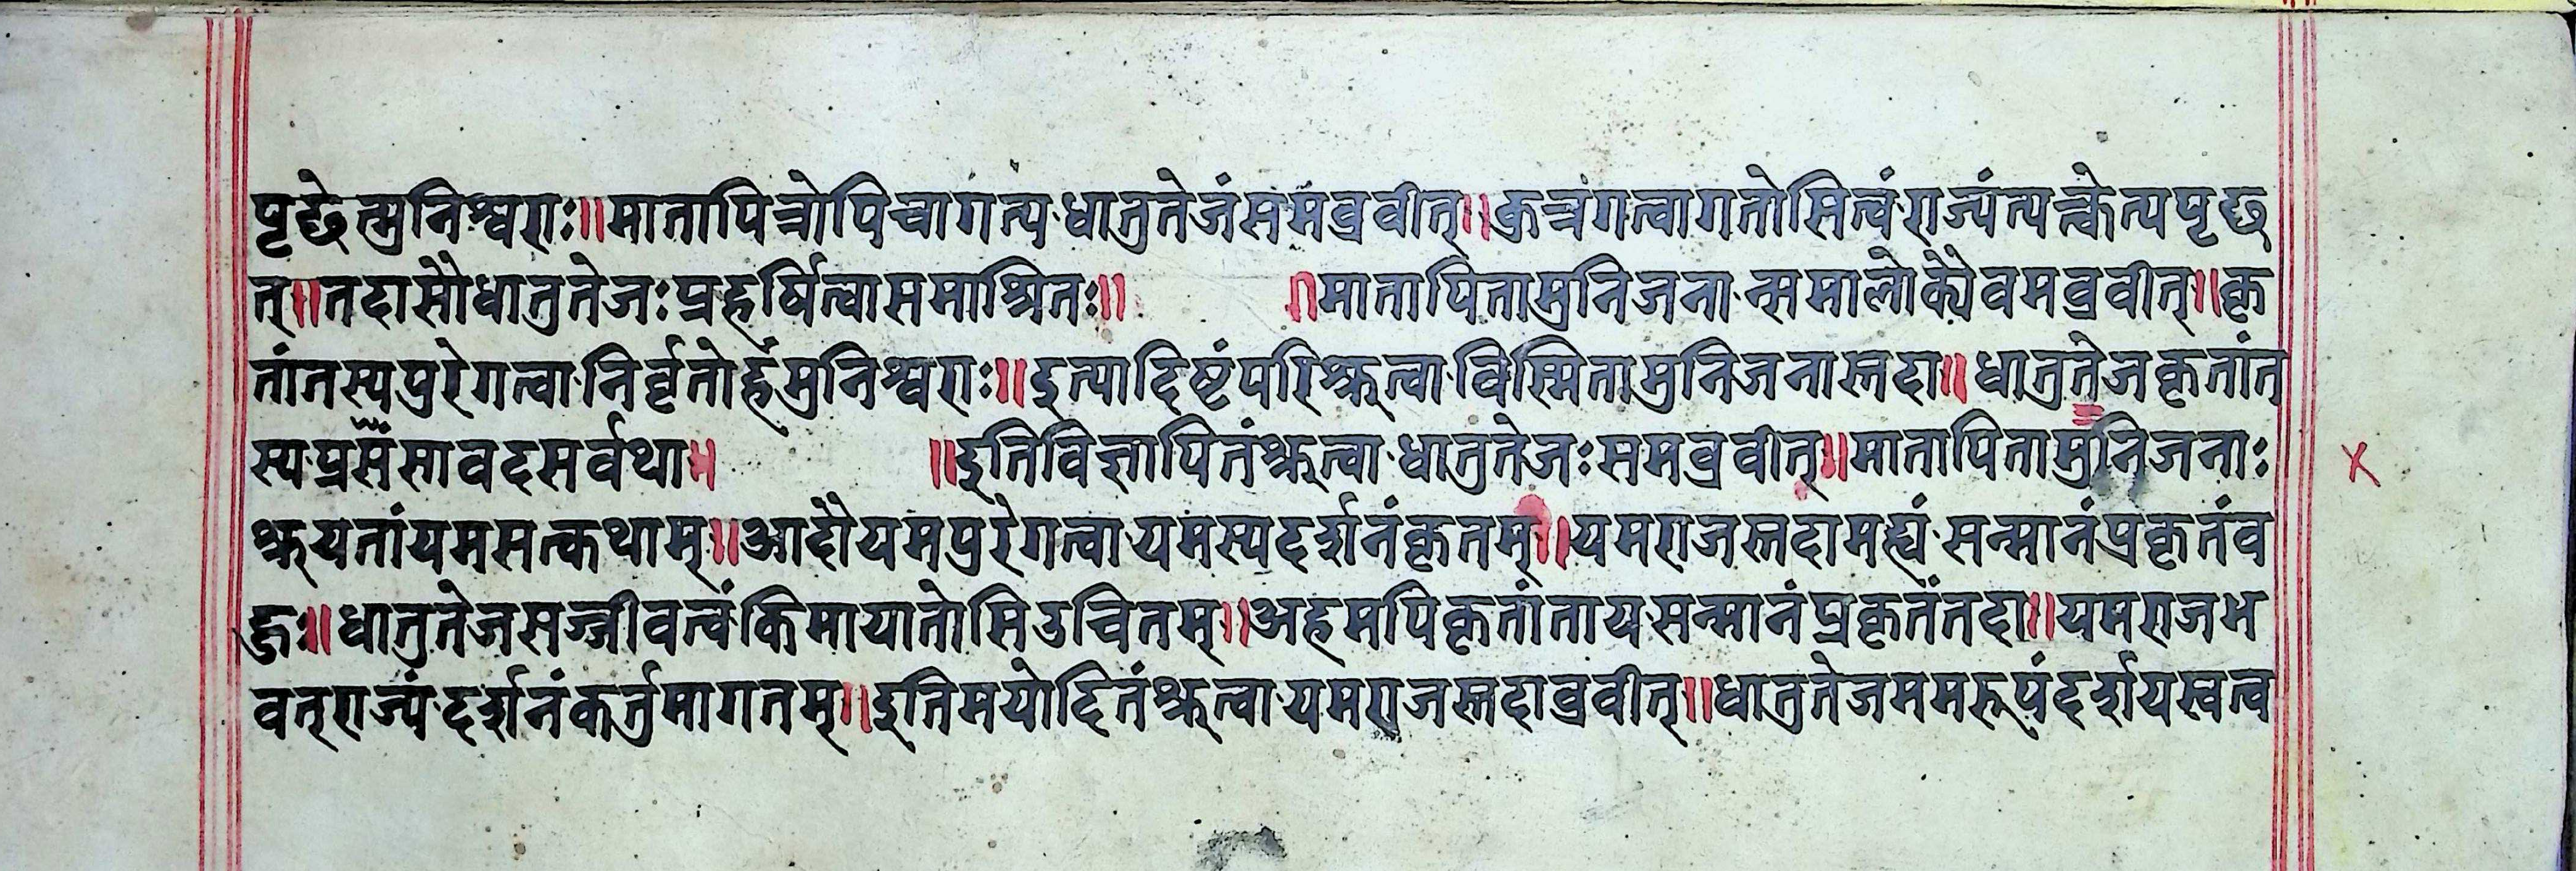 पृछेत्मुनिश्वराः॥मातापित्रोपिचागत्य·धातुतेजंसमब्रवीत्॥कुत्रंगत्वागतोसित्वं·राज्यंत्यत्क्वेत्यपृछ
त्॥तदासौधातुतेजःप्रहर्षित्वासमाश्रितः॥ ॥मातापितामुनिजना·न्समालोक्यैवमब्रवीत्॥कृ
तांतस्यपुरेगत्वा·निर्वृतोर्हंमुनिश्वराः॥इत्यादिष्टंपरिश्रुत्वा·विस्मितामुनिजनास्तदा॥धातुतेजकृतांत
स्य·प्रसँसावदसर्वथा॥ ॥इतिविज्ञापितंश्रुत्वा·धातुतेजःसमब्रवीत्॥मातापितामुनिजनाः
श्रुयतांयमसत्कथाम्॥आदौयमपुरेगत्वा·यमस्यदर्शनंकृतम्॥यमराजस्तदामह्यं·सन्मानंप्रकृतंव
हुः॥धातुतेजसज्जीवत्वं·किमायातोसिउचितम्॥अहमपिकृतांताय·सन्मानंप्रकृतंतदा॥यमराजभ
वत्राज्यं·दर्शनंकर्तुमागतम्॥इतिमयोदितंश्रुत्वा·यमराजस्तदाव्रवीत्॥धातुतेजममरूपंदर्शयस्वत्व